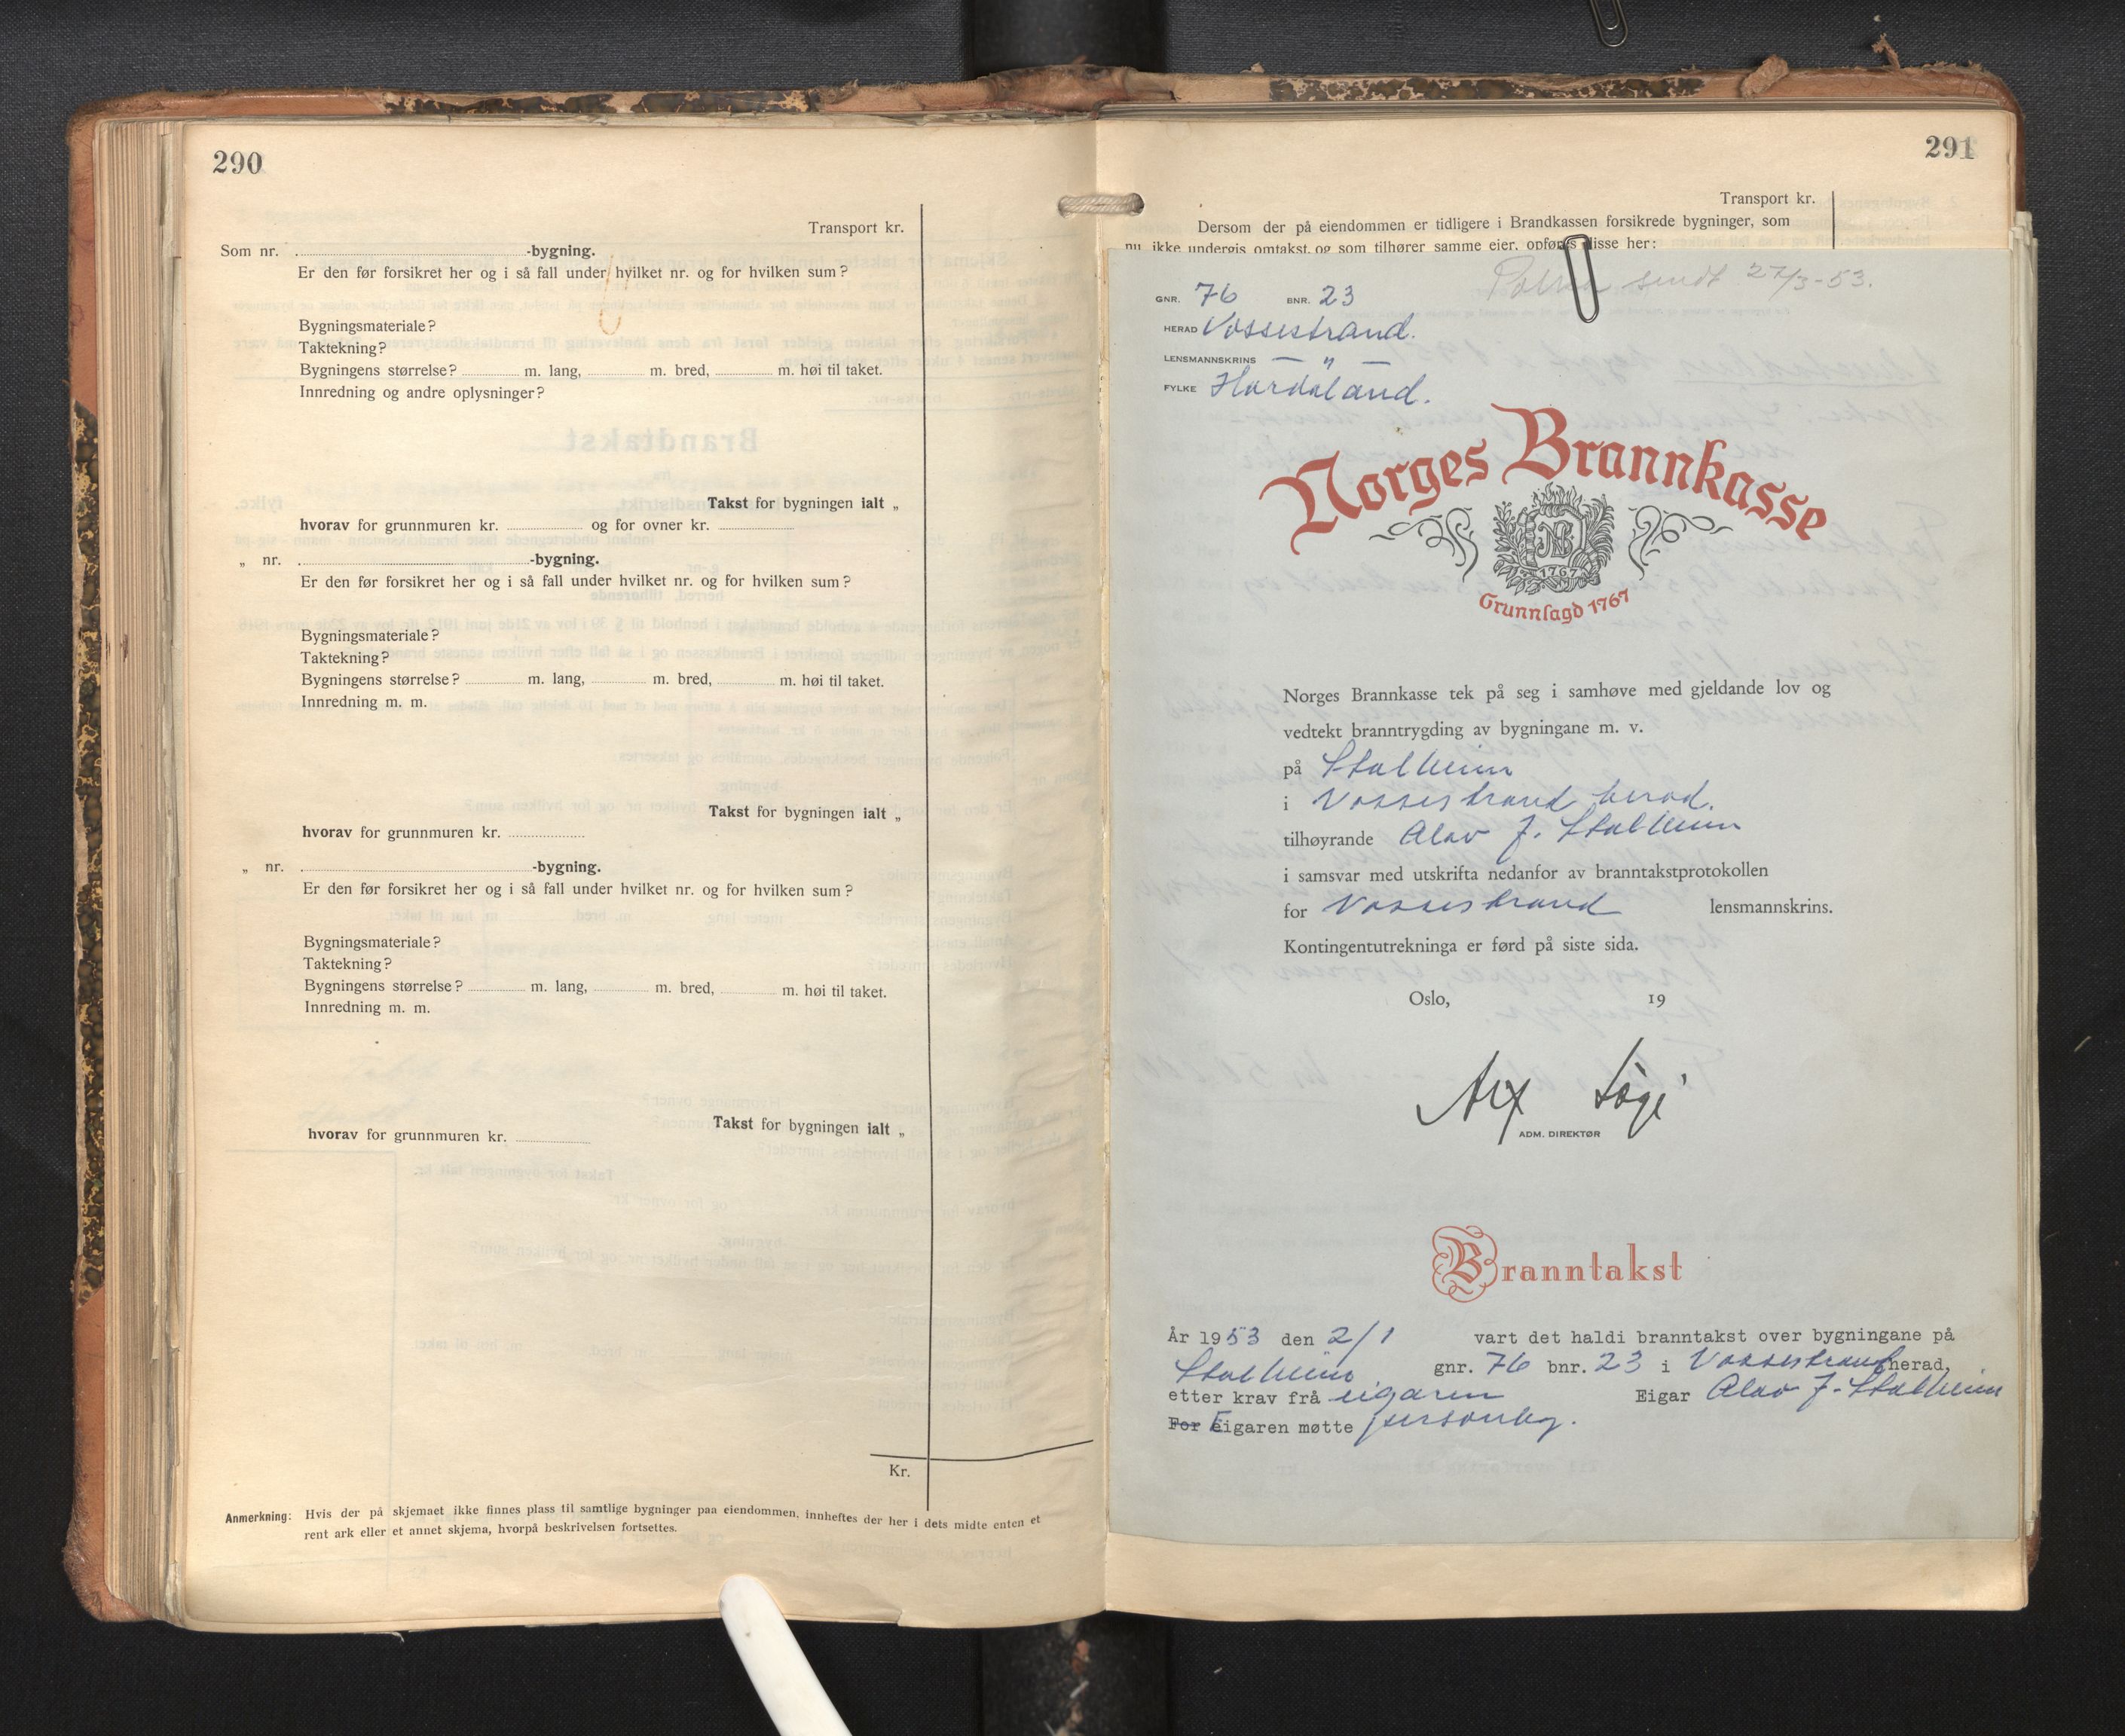 290
Transport kr.
Som nr. -bygning.
Er den før forsikret her og i så fall under hvilket nr. og for hvilken sum?
Bygningsmateriale?
Taktekning?
Bygningens størrelse? m. lang, m. bred, m. høi til taket.
Innredning og andre oplysninger?
Takst for bygningen ialt „
hvorav for grunnmuren kr. og for ovner kr.
„ nr. -bygning.
Er den før forsikret her og i så fall under hvilket nr. og for hvilken sum?
Bygningsmateriale?
Taktekning?
Bygningens størrelse? m. lang, m. bred, m. høi til taket.
Innredning m. m.
Takst for bygningen ialt „
hvorav for grunnmuren kr.
„ nr. -bygning.
Er den før forsikret her og i så fall under hvilket nr. og for hvilken sum?
Bygningsmateriale?
Taktekning?
Bygningens størrelse? m. lang, m. bred, m. høi til taket.
Innredning m. m.
Takst for bygningen ialt „
hvorav for grunnmuren kr.
Kr.
Anmerkning: Hvis der på skjemaet ikke finnes plass til samtlige bygninger paa eiendommen, innheftes der her i dets midte enten et
rent ark eller et annet skjema, hvorpå beskrivelsen fortsettes.
291
Transport kr.
Dersom der på eiendommen er tidligere i Brandkassen forsikrede bygninger, som
nu ikke undergis omtakst, og som tilhører samme eier, opføres disse her:
sendt 27/3-53.
GNR. 76 BNR. 23
HERAD Vossestrand.
LENSMANNSKRINS — " —
FYLKE Hordaland.
Norges Brannkasse
NB
1767
Grunnlagd 1767
Norges Brannkasse tek på seg i samhøve med gjeldande lov og
vedtekt branntrygding av bygningane m. v.
på Stalheim
i Vossestrand herad.
tilhøyrande Olav J. Stalheim
i samsvar med utskrifta nedanfor av branntakstprotokollen
for Vossestrand lensmannskrins.
Kontingentutrekninga er førd på siste sida.
Oslo, 19
ADM. DIREKTØR
Branntakst
År 1953 den 2/1 vart det haldi branntakst over bygningane på
Stalheim gnr. 76 bnr. 23 i Vossestrand herad,
etter krav frå eigaren Eigar Olav J. Stalheim
For Eigaren møtte personleg.